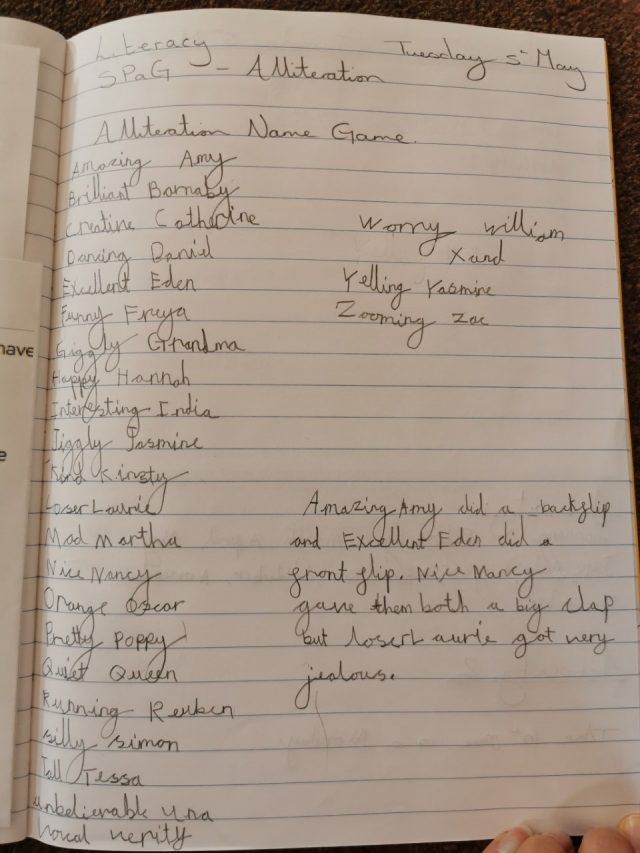 Literacy Tuesday 5th May
SPaG - Alliteration
Alliteration Name Game.
Amazing Amy
Brilliant Barnaby
Creative Catherine
Dancing Daniel
Excellent Eden
Funny Freya
Giggly Grandma
Happy Hannah
Interesting India
Jiggly Jasmine
Kind Kirsty
Loser Laurie
Mad Martha
Nice Nancy
Orange Oscar
Pretty Poppy
Quiet Queen
Running Reuben
Silly Simon
Tall Tessa
Unbelievable Una
Vocal Verity
Worry William
Xand
Yelling Yasmine
Zooming Zac
Amazing Amy did a backflip
and Excellent Eden did a
front flip. Nice Nancy
gave them both a big clap
but loser Laurie got very
jealous.
have